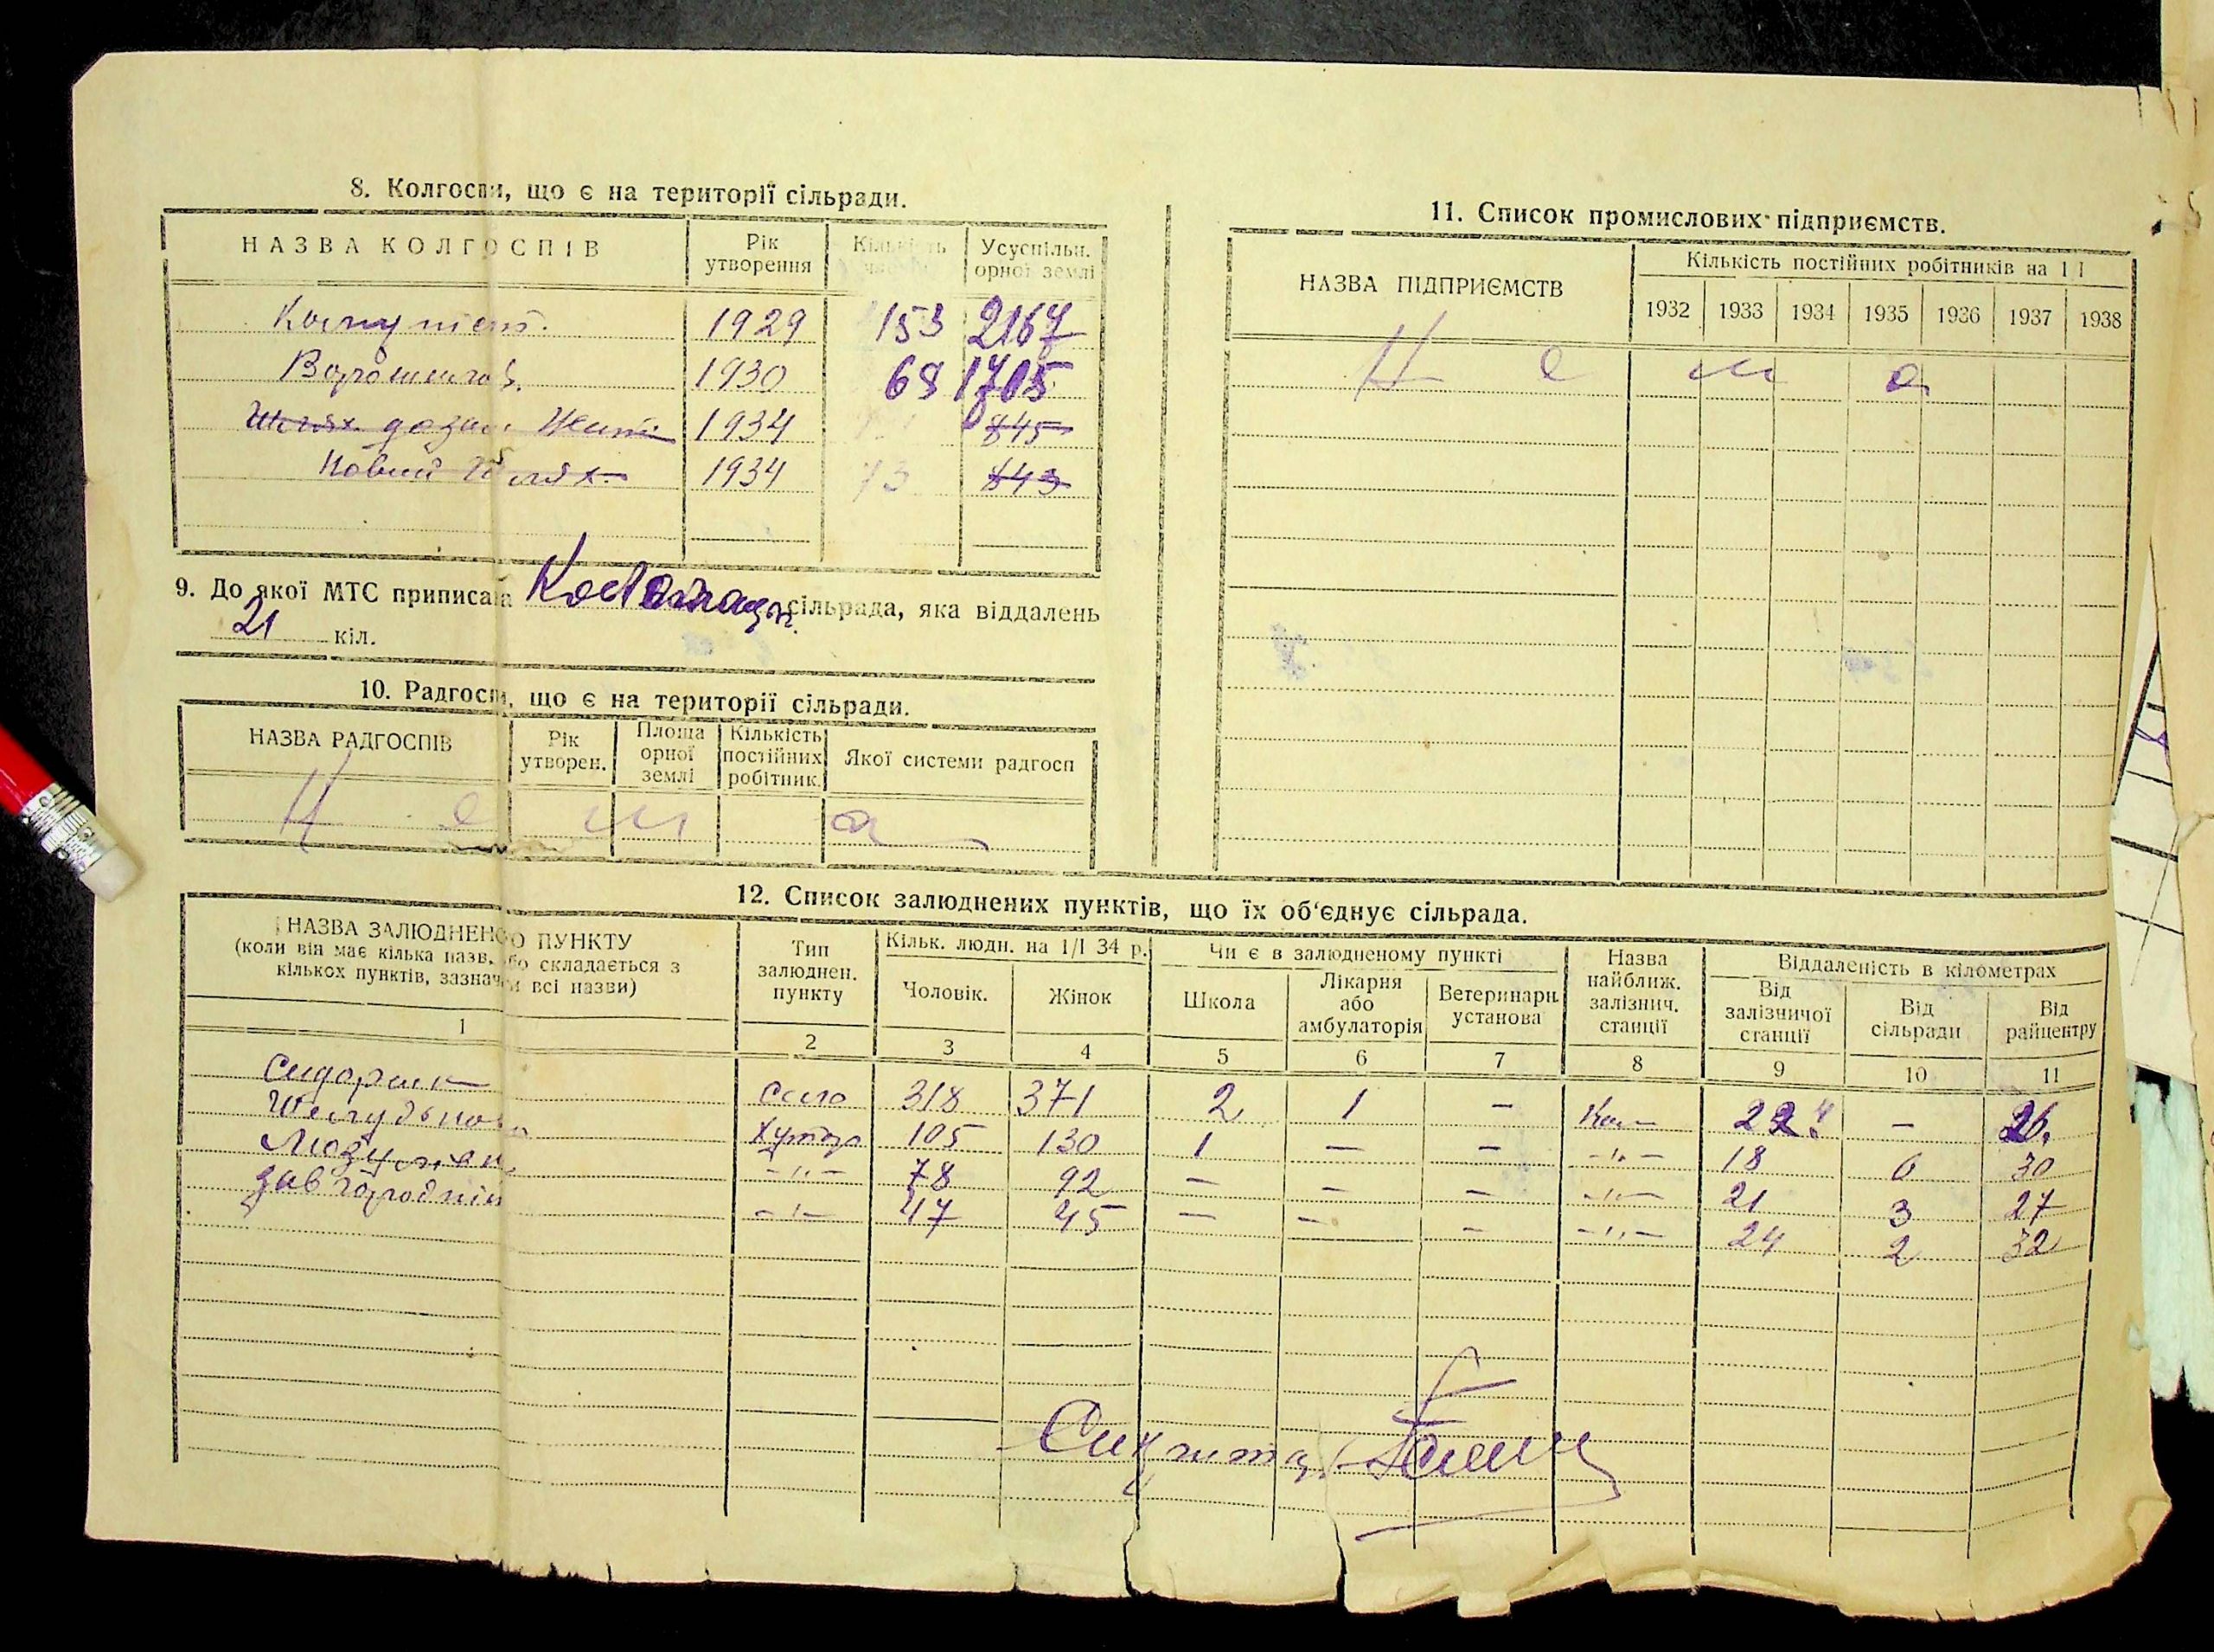 8. Колгоспи, що є на території сільради.
НАЗВА КОЛГОСПІВ
Рік утворення
Кількість
Усуспільн. орної землі
1929 153 2167
1930 68 1705
1934 845
Новий Шлях 1934 73 843
9. До якої МТС приписана сільрада, яка віддалень
21 кіл.
10. Радгоспи, що є на території сільради.
НАЗВА РАДГОСПІВ
Рік утворен.
Площа орної землі
Кількість постійних робітник.
Якої системи радгосп
Н е м а
11. Список промислових підприємств.
НАЗВА ПІДПРИЄМСТВ
Кількість постійних робітників на 1 І
1932 1933 1934 1935 1936 1937 1938
Н е м а
12. Список залюднених пунктів, що їх об‘єднує сільрада.
НАЗВА ЗАЛЮДНЕНОГО ПУНКТУ
(коли він має кілька назв, або складається з
кількох пунктів, зазначи всі назви)
Тип залюднен. пункту
Кільк. людн. на 1/І 34 р.
Чоловік.
Жінок
Чи є в залюдненому пункті
Школа
Лікарня або амбулаторія
Ветеринарн. установа
Назва найближ. залізнич. станції
Віддаленість в кілометрах
Від залізничої станції
Від сільради
Від райцентру
1 2 3 4 5 6 7 8 9 10 11
село 318 371 2 1 – – 26.
Хутор 105 130 1 – – -"- 18 6 30
-"- 78 92 – – – -"- 21 3 27
-"- 47 45 – – – -"- 24 2 32